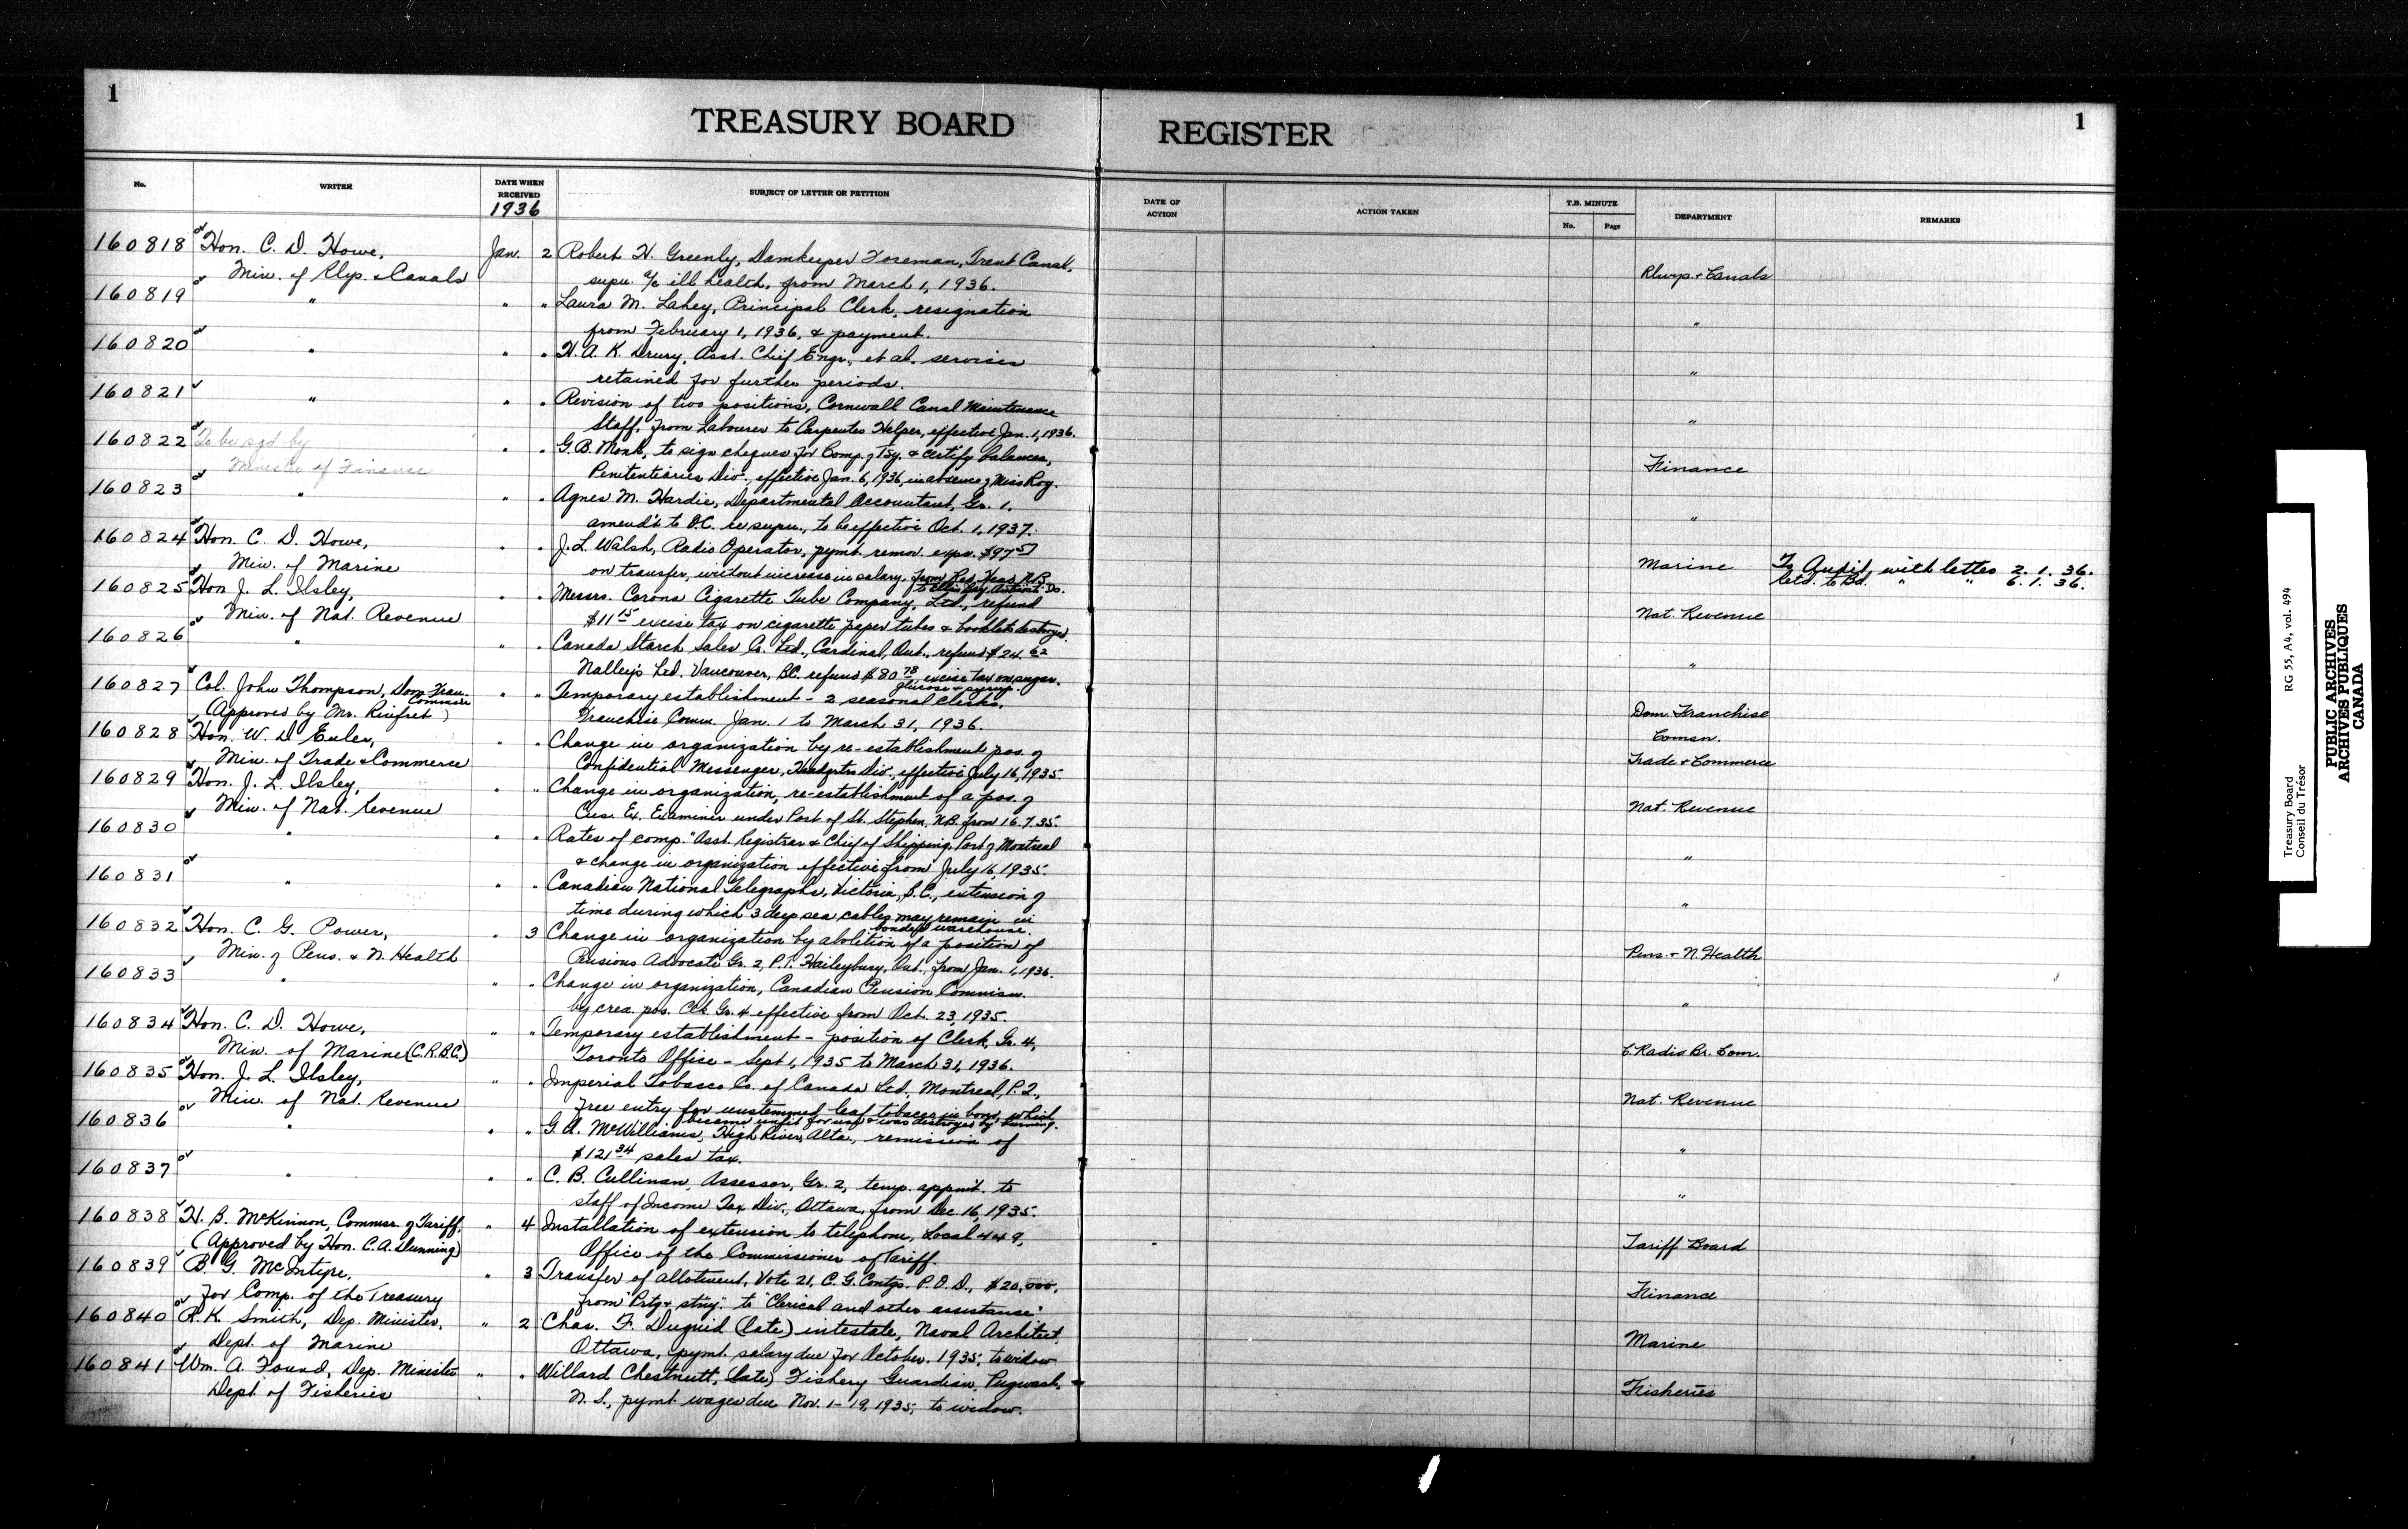 1
TREASURY BOARD REGISTER
1
No. WRITER DATE WHEN RECEIVED SUBJECT OF LETTER OR PETITION DATE OF ACTION ACTION TAKEN T.B. MINUTE No. Page DEPARTMENT REMARKS
1936
160818 Hon. C. D. Howe, Jan. 2 Robert H. Greenly, Damkeeper Foreman, Trent Canal,
Min. of Rlys. & Canals supn. a/c ill health, from March 1, 1936. Rlwys. & Canals
160819 " " " Laura M. Lahey, Principal Clerk, resignation
from February 1, 1936, & payment. "
160820 " " " H. A. K. Drury, Asst. Chief Engr., et al. services
retained for further periods. "
160821 " " " Revision of two positions, Cornwall Canal Maintenance
Staff, from Labourer to Carpenter Helper, effective Jan. 1, 1936. "
160822 To be sgd by " " G. B. Monk, to sign cheques for Comp. of Tsy. & certify balances,
Minister of Finance Penitentiaries Div., effective Jan. 6, 1936, in absence of Miss Roy. Finance
160823 " " " Agnes M. Hardie, Departmental Accountant, Gr. 1.
amend't to O.C. re supn., to be effective Oct. 1, 1937. "
160824 Hon. C. D. Howe, " " J. L. Walsh, Radio Operator, pymt. remov. expn. $97.57
Min. of Marine on transfer, without increase in salary, from Red Head, N.B. Marine To Audit, with letter 2. 1. 36.
Retd. to Bd. " " 6. 1. 36.
160825 Hon J. L. Ilsley, " " Messrs. Corona Cigarette Tube Company, Ltd., refund
Min. of Nat. Revenue $11.15 excise tax on cigarette paper tubes & booklets destroyed. Nat. Revenue
160826 " " " Canada Starch Sales Co. Ltd., Cardinal, Ont., refund $24.62
Nalley's Ltd. Vancouver, B.C. refund $80.78, excise tax on sugar. "
glucose & syrup.
160827 Col. John Thompson, Dom. Fran. " " Temporary establishment - 2 seasonal clerks,
Commsr
(Approved by Mr. Rinfret) Franchise Comm. Jan. 1 to March 31, 1936. Dom. Franchise
Comsn.
160828 Hon. W. D. Euler, " " Change in organization by re-establishment pos. of
Min. of Trade & Commerce Confidential Messenger, Headqrtrs Div., effective July 16, 1935. Trade & Commerce
160829 Hon. J. L. Ilsley, " " Change in organization, re-establishment of a pos. of
Min. of Nat. Revenue Cus. Ex. Examiner under Port of St. Stephen, N.B. from 16.7.35. Nat. Revenue
160830 " " " Rates of comp. "Asst. Registrar & Chief of Shipping, Port of Montreal
& change in organization effective from July 16, 1935. "
160831 " " " Canadian National Telegraphs, Victoria, B.C., extension of
time during which 3 deep sea cables may remain in "
bonded warehouse.
160832 Hon. C. G. Power, " 3 Change in organization by abolition of a position of
Min. of Pens. & N. Health Pensions Advocate Gr. 2, P.T. Haileybury, Ont., from Jan. 1, 1936. Pens. & N. Health
160833 " " " Change in organization, Canadian Pension Commisn.
by crea. pos. Clk. Gr. 4 effective from Oct. 23, 1935. "
160834 Hon. C. D. Howe, " " Temporary establishment - position of Clerk, Gr. 4,
Min. of Marine (C.R.B.C.) Toronto Office - Sept 1, 1935 to March 31, 1936. C. Radio Br. Com.
160835 Hon. J. L. Ilsley, " " Imperial Tobacco Co. of Canada Ltd., Montreal, P.Q.,
Min. of Nat. Revenue Free entry for unstemmed leaf tobacco in bond, which Nat. Revenue
became unfit for use & was destroyed by burning.
160836 " " " G. A. McWilliams, High River, Alta., remission of
$121.34 sales tax. "
160837 " " " C. B. Cullinan, Assessor, Gr. 2, temp. appmt. to
staff of Income Tax Div., Ottawa, from Dec. 16, 1935. "
160838 H. B. McKinnon, Commsr. of Tariff, " 4 Installation of extension to telephone, Local 449,
(Approved by Hon. C. A. Dunning) Office of the Commissioner of Tariff. Tariff Board
160839 B. G. McIntyre, " 3 Transfer of allotment, Vote 21, C. G. Contgs. P.O.D., $20,000,
for Comp. of the Treasury from "Prtg & stny." to "Clerical and other assistance." Finance
160840 R. K. Smith, Dep. Minister, " 2 Chas. F. Duguid (late) intestate, Naval Architect,
Dept. of Marine Ottawa, pymt. salary due for October, 1935, to widow Marine
160841 Wm. A. Found, Dep. Minister " " Willard Chestnutt, (late) Fishery Guardian, Pugwash,
Dept of Fisheries N.S., pymt wages due Nov. 1-19, 1935, to widow. Fisheries
Treasury Board RG 55, A4, vol. 494
Conseil du Trésor
PUBLIC ARCHIVES
ARCHIVES PUBLIQUES
CANADA